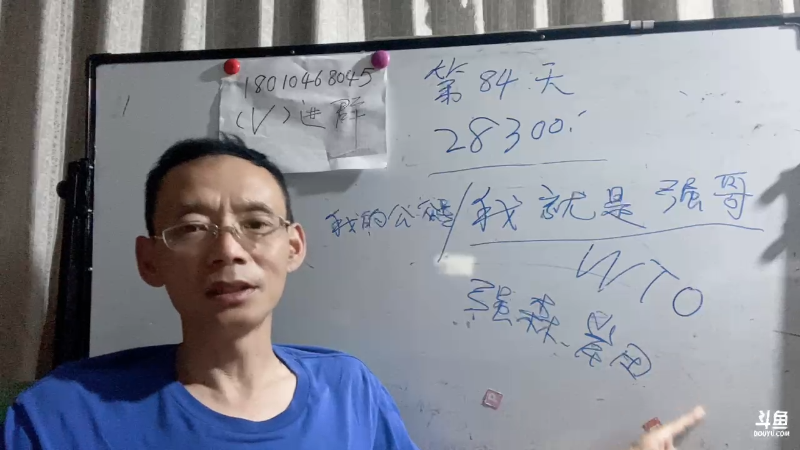 18010468045
(V)进群
第84天
28300
我的公
我就是强哥
WTO
强森
斗鱼
DOUYU.COM